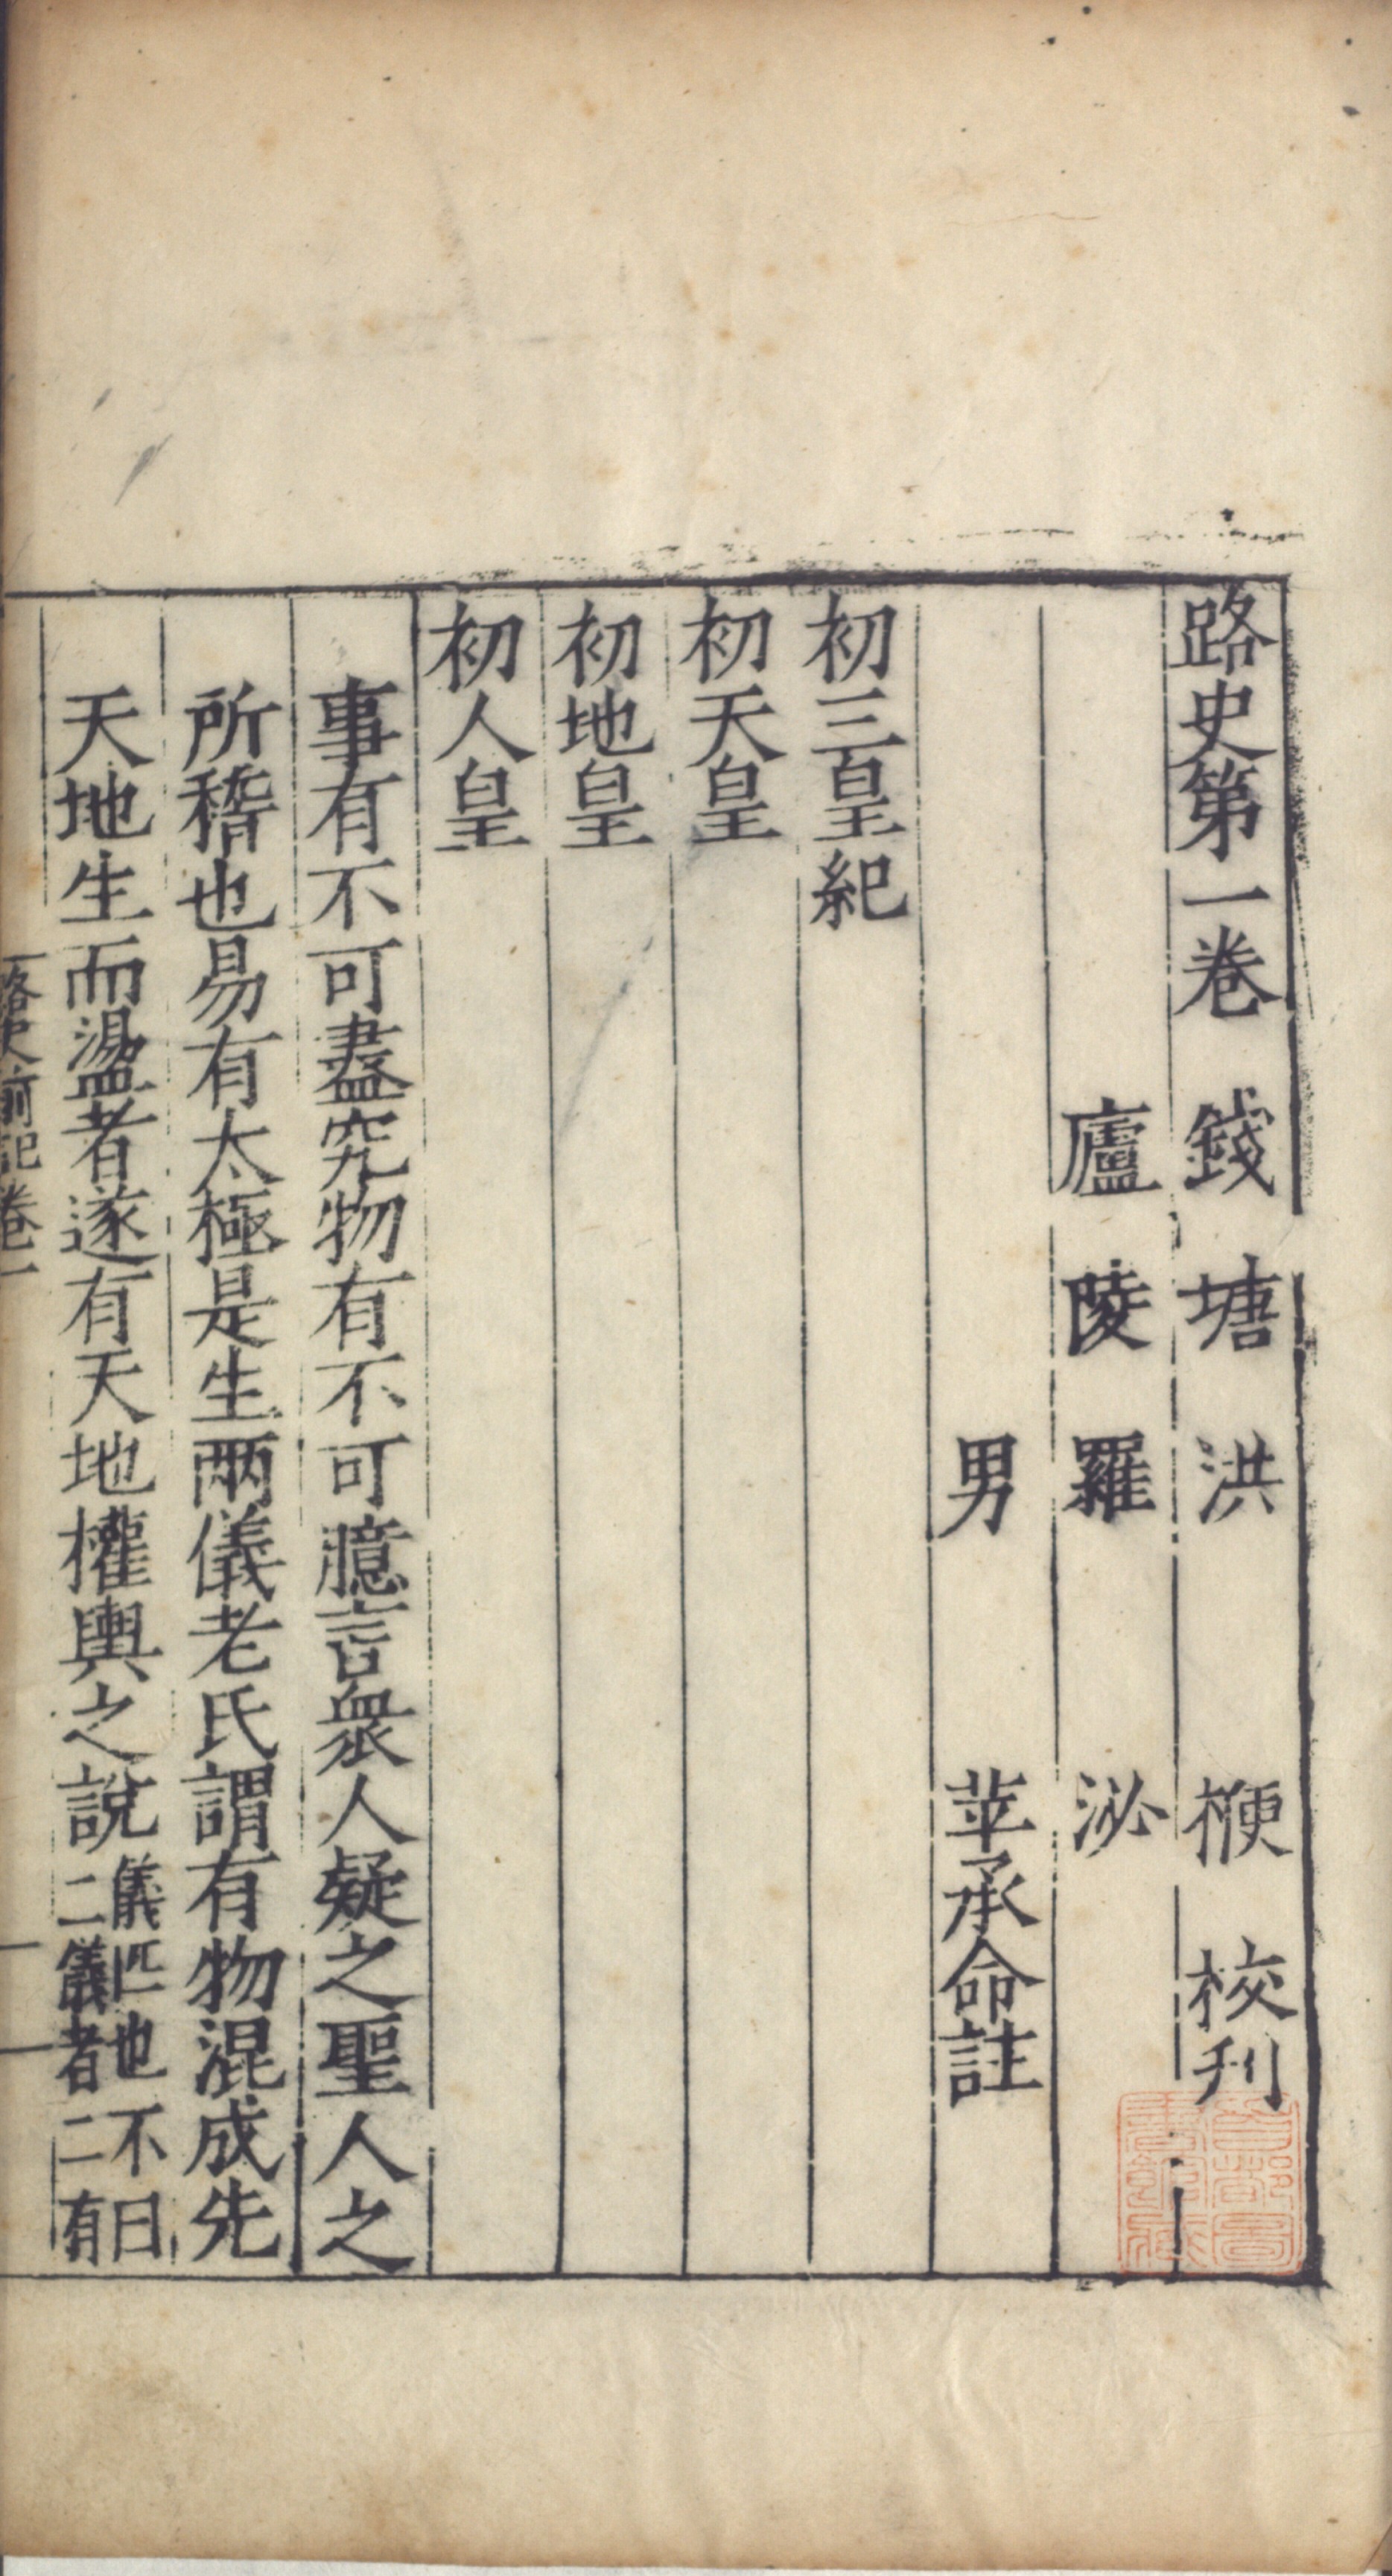 路史第一卷 錢塘洪楩校刋
廬陵羅泌
男苹承命註
初三皇紀
初天皇
初地皇
初人皇
事有不可盡究物有不可臆言衆人疑之聖人之
所稽也易有太極是生兩儀老氏謂有物混成先
天地生而盪者遂有天地權輿之說儀匹也不曰
二儀者二有
路史前記卷一
首都圖
書館藏